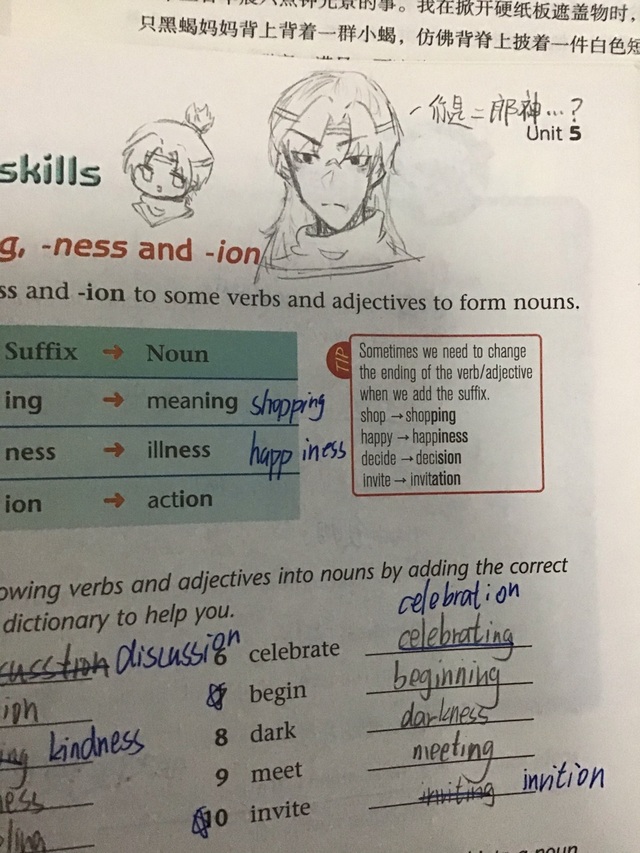 只黑蝎妈妈背上背着一群小蝎,仿佛背脊上披着一件白色短
一你是二郎神…?
Unit 5
skills
g, -ness and -ion
ss and -ion to some verbs and adjectives to form nouns.
Suffix → Noun
ing → meaning shopping
ness → illness happiness
ion → action
TIP
Sometimes we need to change
the ending of the verb/adjective
when we add the suffix.
shop → shopping
happy → happiness
decide → decision
invite → invitation
owing verbs and adjectives into nouns by adding the correct
dictionary to help you.
celebration
discussion 6 celebrate celebrating
ion begin beginning
ng kindness 8 dark darkness
ness 9 meet meeting
ling 10 invite inviting invition